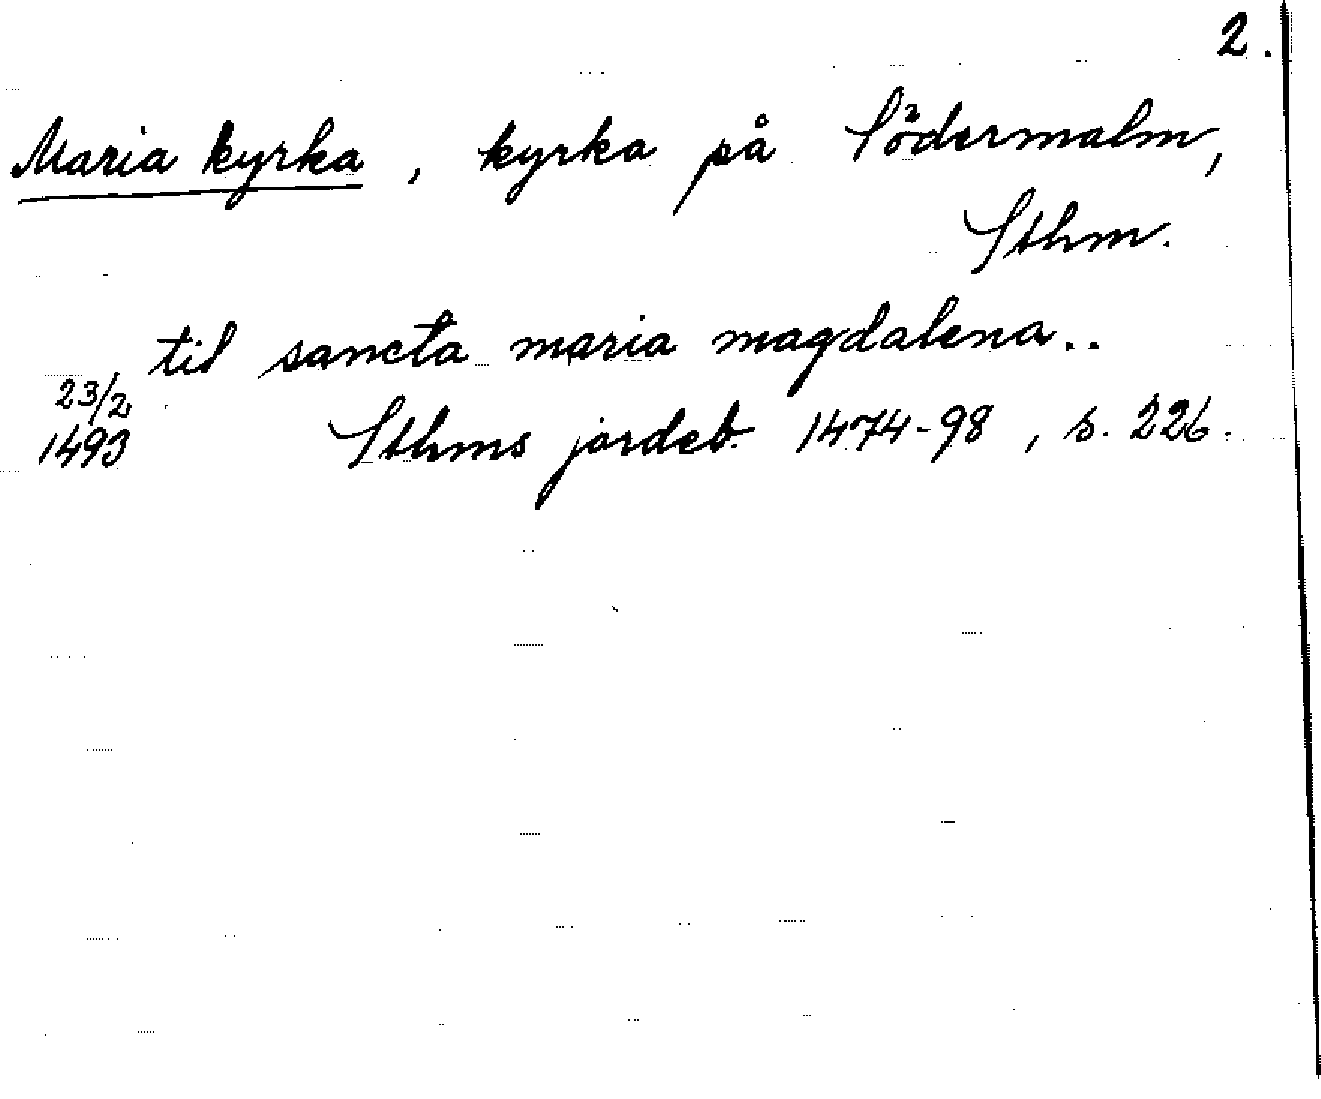 2.
Maria kyrka, kyrka på Södermalm,
Sthm.
til sancta maria magdalena..
23/2
1493 Sthms jordeb. 1474-98, s. 226.